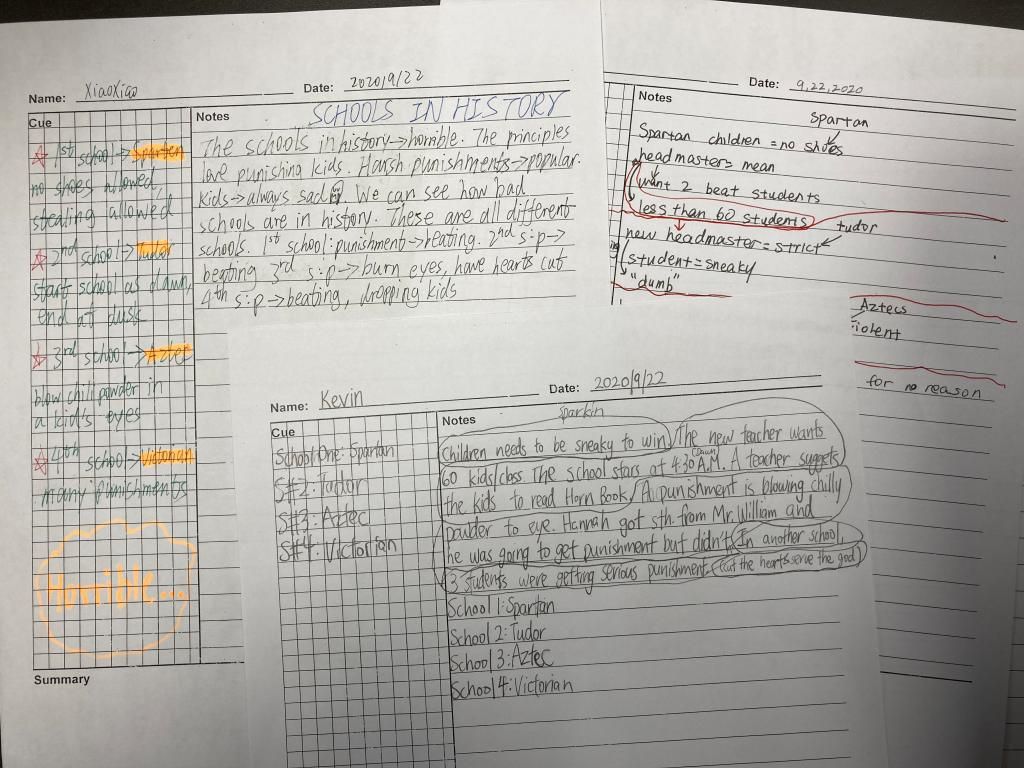 Name: XiaoXiao
Date: 2020/9/22
Cue
☆ 1st school→Spartan
no shoes allowed,
stealing allowed
☆ 2nd school→Tudor
start school as dawn,
end at dusk
☆ 3rd school→Aztec
blow chili powder in
a kid's eyes
☆ 4th school→Victorian
many punishments
Horrible...
Summary
Notes
SCHOOLS IN HISTORY
The schools in history→horrible. The principles
love punishing kids. Harsh punishments→popular.
kids→always sad. We can see how bad
schools are in history. These are all different
schools. 1st school: punishment→beating. 2nd s:p→
beating 3rd s:p→burn eyes, have hearts cut
4th s:p→beating, dropping kids
Date: 9,22,2020
Notes
Spartan
Spartan children = no shoes
headmaster = mean
want 2 beat students
less than 60 students
tudor
new headmaster = strict
student = sneaky
"dumb"
Aztecs
violent
for no reason
Name: Kevin
Date: 2020/9/22
Cue
School One: Spartan
S#2: Tudor
S#3: Aztec
S#4: Victorian
Notes
Sparkin
Children needs to be sneaky to win. The new teacher wants
60 kids/class. The school stars at 4:30 A.M. (Dawn) A teacher suggets
the kids to read Horn Book. A punishment is blowing chilly
pauder to eye. Hannah got sth. from Mr. William and
he was going to get punishment but didn't. In another school,
3 students were getting serious punishment. (cut the hearts serve the god)
School 1: Spartan
School 2: Tudor
School 3: Aztec
School 4: Victorian